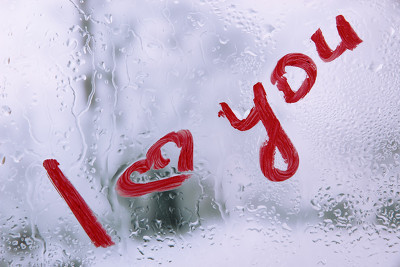 I ♥ you